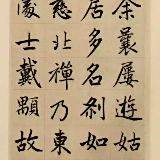 余曩屢遊姑
居多名剎如
慈北禪乃東
處士戴顒故